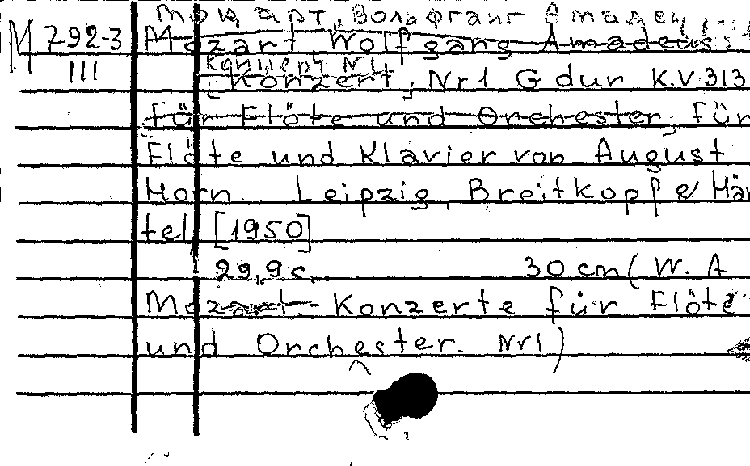 Моцарт, Вольфганг Амадей
M 792-3 Mozart Wolfgang Amadeus.
III Концерт №1
Konzert, Nr1 G dur K.V.313
für Flöte und Orchester, für
Flöte und Klavier von August
Horn. Leipzig, Breitkopf & Här
tel [1950]
29,9 c. 30 cm (W. A
Mozart Konzerte für Flöte
und Orchester. Nr1)